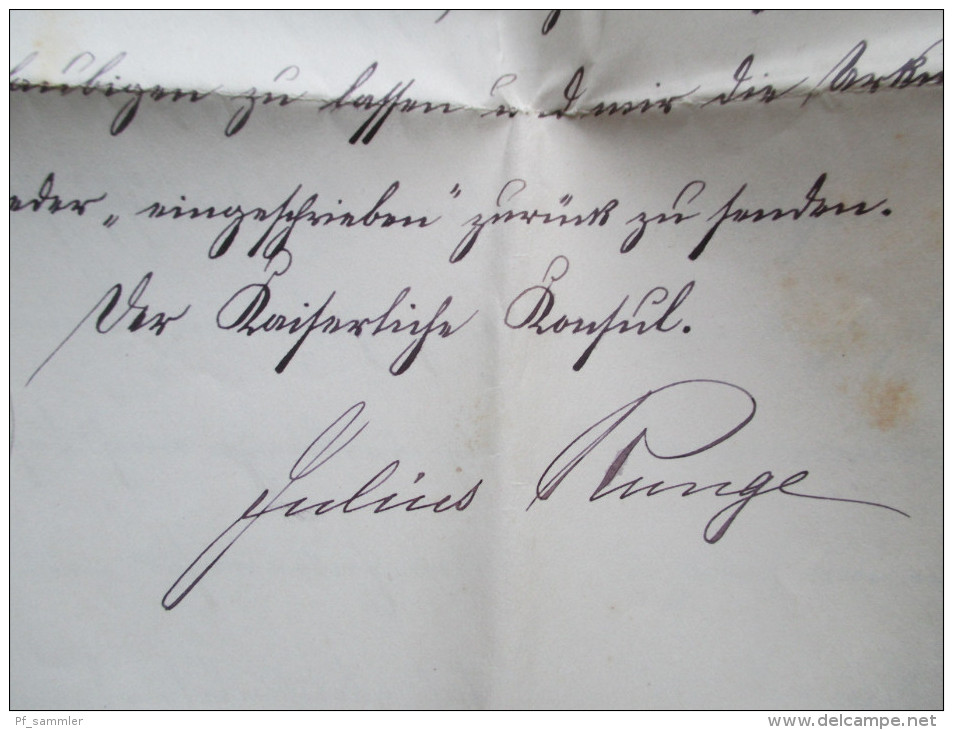 aubigen zu lassen und mir die Urkun
eder „eingeschrieben“ zurück zu senden.
Der Kaiserliche Konsul.
Julius Runge
Pf_sammler
www.delcampe.net